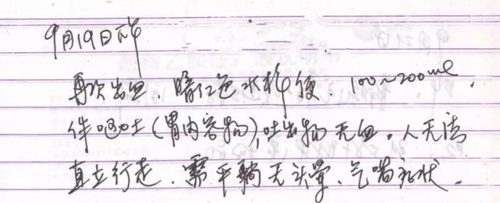 9月19日下午
再次出血.暗红色水样便.100~200ml.
伴呕吐(胃内容物),吐出物无血.人无法
直立行走.需平躺无头晕、气喘症状.